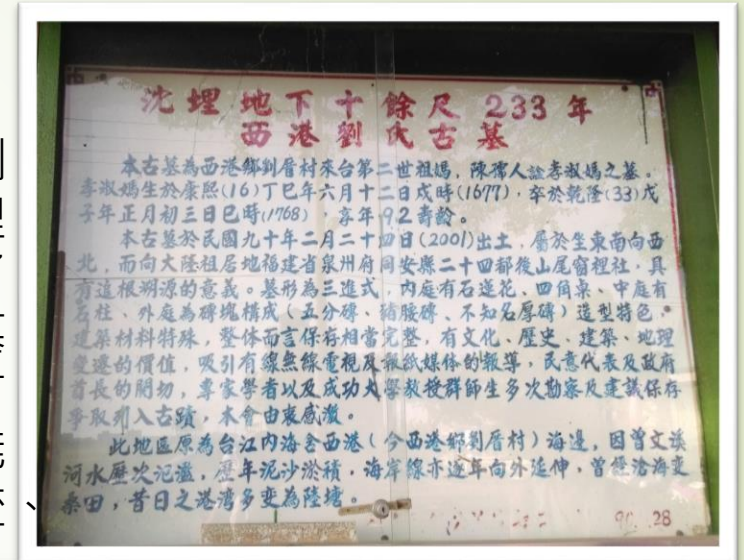 沈埋地下十餘尺 233 年
西港劉氏古墓
本古墓為西港鄉劉厝村來台第二世祖媽,陳孺人諡孝淑媽之墓。
孝淑媽生於康熙(16)丁巳年六月十二日戌時(1677),卒於乾隆(33)戊
子年正月初三日巳時(1768),享年92壽齡。
本古墓於民國九十年二月二十四日(2001)出土,屬於坐東南向西
北,面向大陸祖居地福建省泉州府同安縣二十四都後山尾窟裡社,具
有追根溯源的意義。墓形為三進式,內庭有石蓮花、四角桌、中庭有
石柱、外庭為磚塊構成(五分磚、豬腰磚、不知名厚磚)造型特色。
建築材料特殊,整体而言保存相當完整,有文化、歷史、建築、地理
變遷的價值,吸引有線無線電視及報紙媒体的報導,民意代表及政府
首長的關切,專家學者以及成功大學教授群師生多次勘察及建議保存
爭取列入古蹟,本會由衷感激。
此地區原為台江內海含西港(今西港鄉劉厝村)海邊,因曾文溪
河水歷次氾濫,歷年泥沙淤積,海岸線亦逐年向外延伸,曾經滄海變
桑田,昔日之港灣多變為陸塘。
28